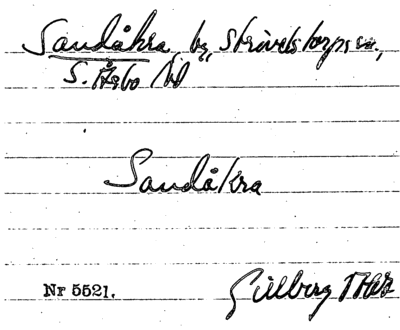 Sandåkra, by, Strövelstorps sn.,
S. Åsbo hd
Sandåkra
Nr 5521.
Gillberg